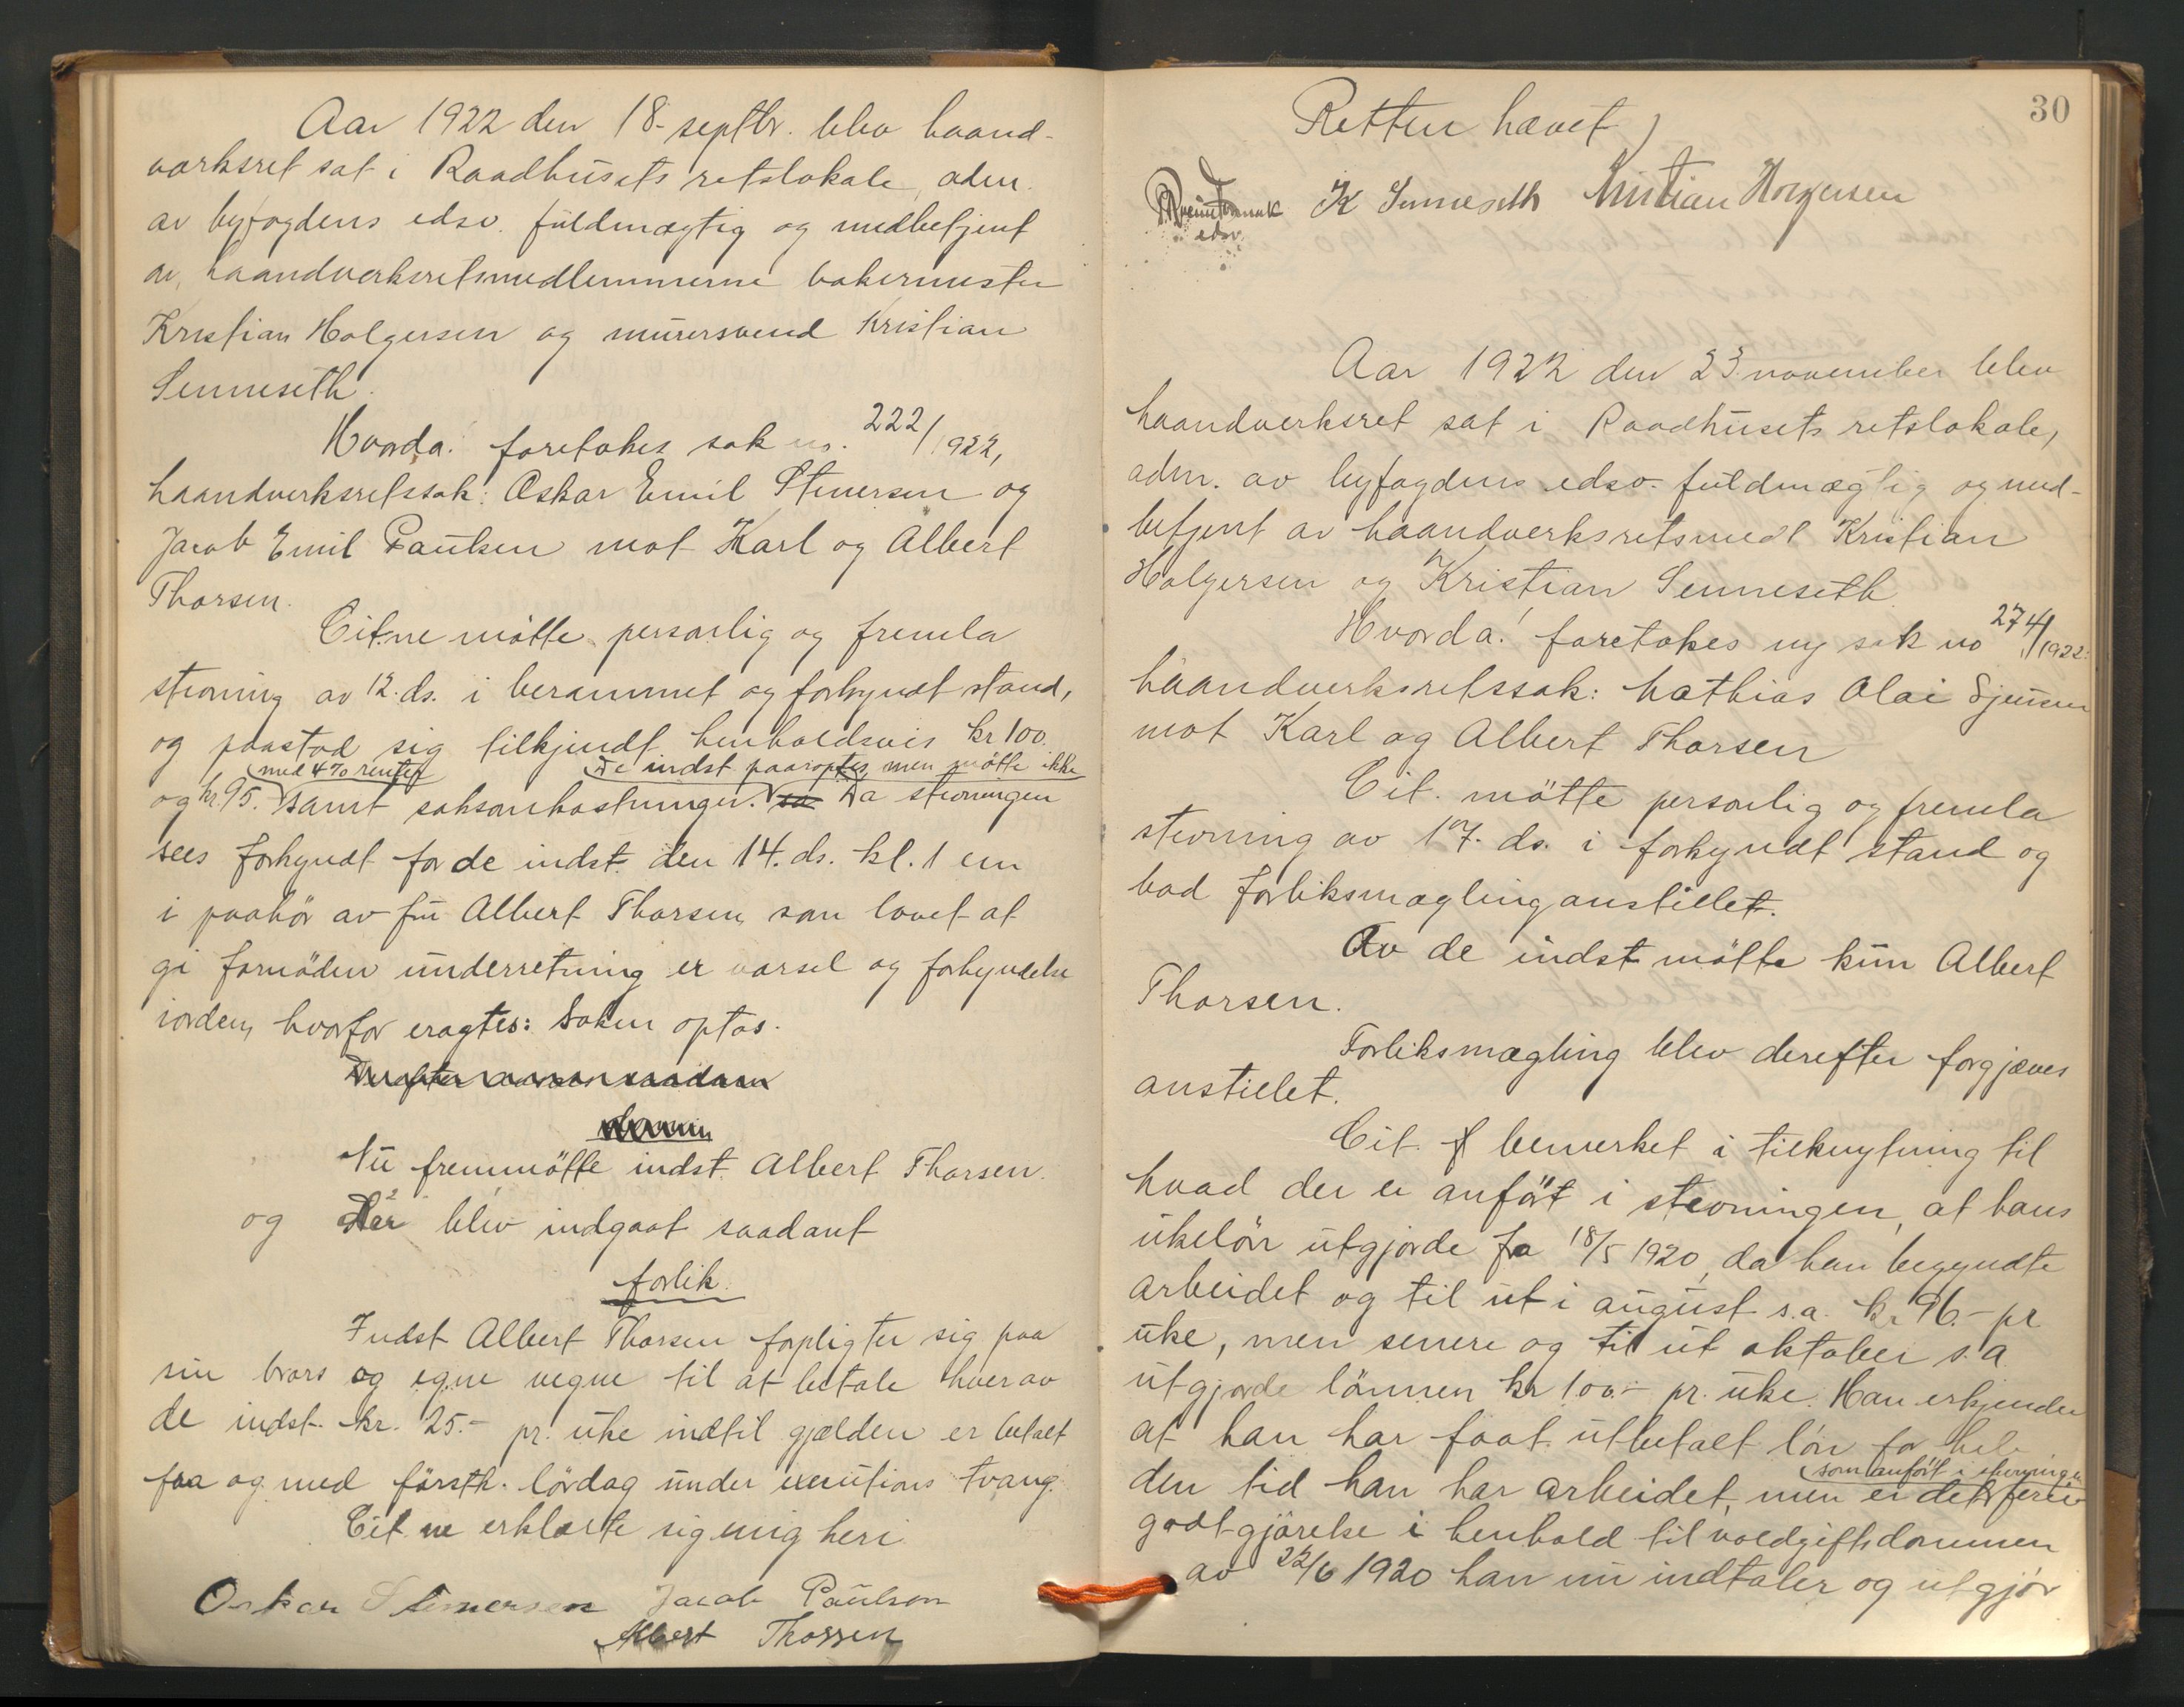 Aar 1922 den 18. septbr. blev haand-
verksret sat i Raadhusets retslokale, adm.
av byfogdens edsv. fuldmægtig og medbetjent
av haandverksretsmedlemmerne bakermester
Kristian Holgersen og murersvend Kristian
Senneseth.
Hvorda: foretokes sak no. 222/1922,
haandverksretssak: Oskar Emil Stenersen og
Jacob Emil Paulsen mot Karl og Albert
Thorsen.
Cit.ne møtte personlig og fremla
stevning av 12. ds. i berammet og forkyndt stand,
og paastod sig tilkjendt henholdsvis kr 100.
med 4% renter De indst paaroptes, men møtte ikke
og kr. 95. samt saksomkostninger. Da stevningen
sees forkyndt for de indst. den 14. ds. kl. 1 em
i paahør av fru Albert Thorsen, som lovet at
gi fornøden underretning er varsel og forkyndelse
iorden, hvorfor eragtes: Saken optas.
Derefter saadan
Nu fremmøtte indst. Albert Thorsen.
og der blev indgaat saadant
forlik.
Indst Albert Thorsen forpligter sig paa
sin brors og egne vegne til at betale hver av
de indst. kr. 25.- pr. uke indtil gjælden er betalt
fra og med førstk. lørdag under executions tvang.
Cit.ne erklærte sig enig heri
Oskar Stenersen Jacob Paulsen
Albert Thorsen
30
Retten hævet
edsv.
K Senneseth Kristian Holgersen
Aar 1922 den 23. november blev
haandverksret sat i Raadhusets retslokale,
adm. av byfogdens edsv. fuldmægtig og med-
betjent av haandverksretsmedl Kristian
Holgersen og Kristian Senneseth
Hvorda! foretokes ny sak no 274/1922:
haandverksretssak: Mathias Olai
mot Karl og Albert Thorsen
Cit. møtte personlig og fremla
stevning av 17. ds. i forkyndt stand og
bad forliksmægling anstillet.
Av de indst møtte kun Albert
Thorsen.
Forliksmægling blev derefter forgjæves
anstillet.
Cit. bemerket i tilknytning til
hvad der er anført i stevningen, at hans
ukeløn utgjorde fra 18/5 1920, da han begyndte
arbeidet og til ut i august s.a. kr 96.- pr
uke, men senere og til ut oktober s.a.
utgjorde lønnen kr 100.- pr. uke. Han erkjender
at han har faat utbetalt løn for hele
som anført i stevningen
den tid han har arbeidet, men er det ferie
godtgjørelse i henhold til voldgiftsdommen
av 22/6 1920 han nu indtaler og utgjør